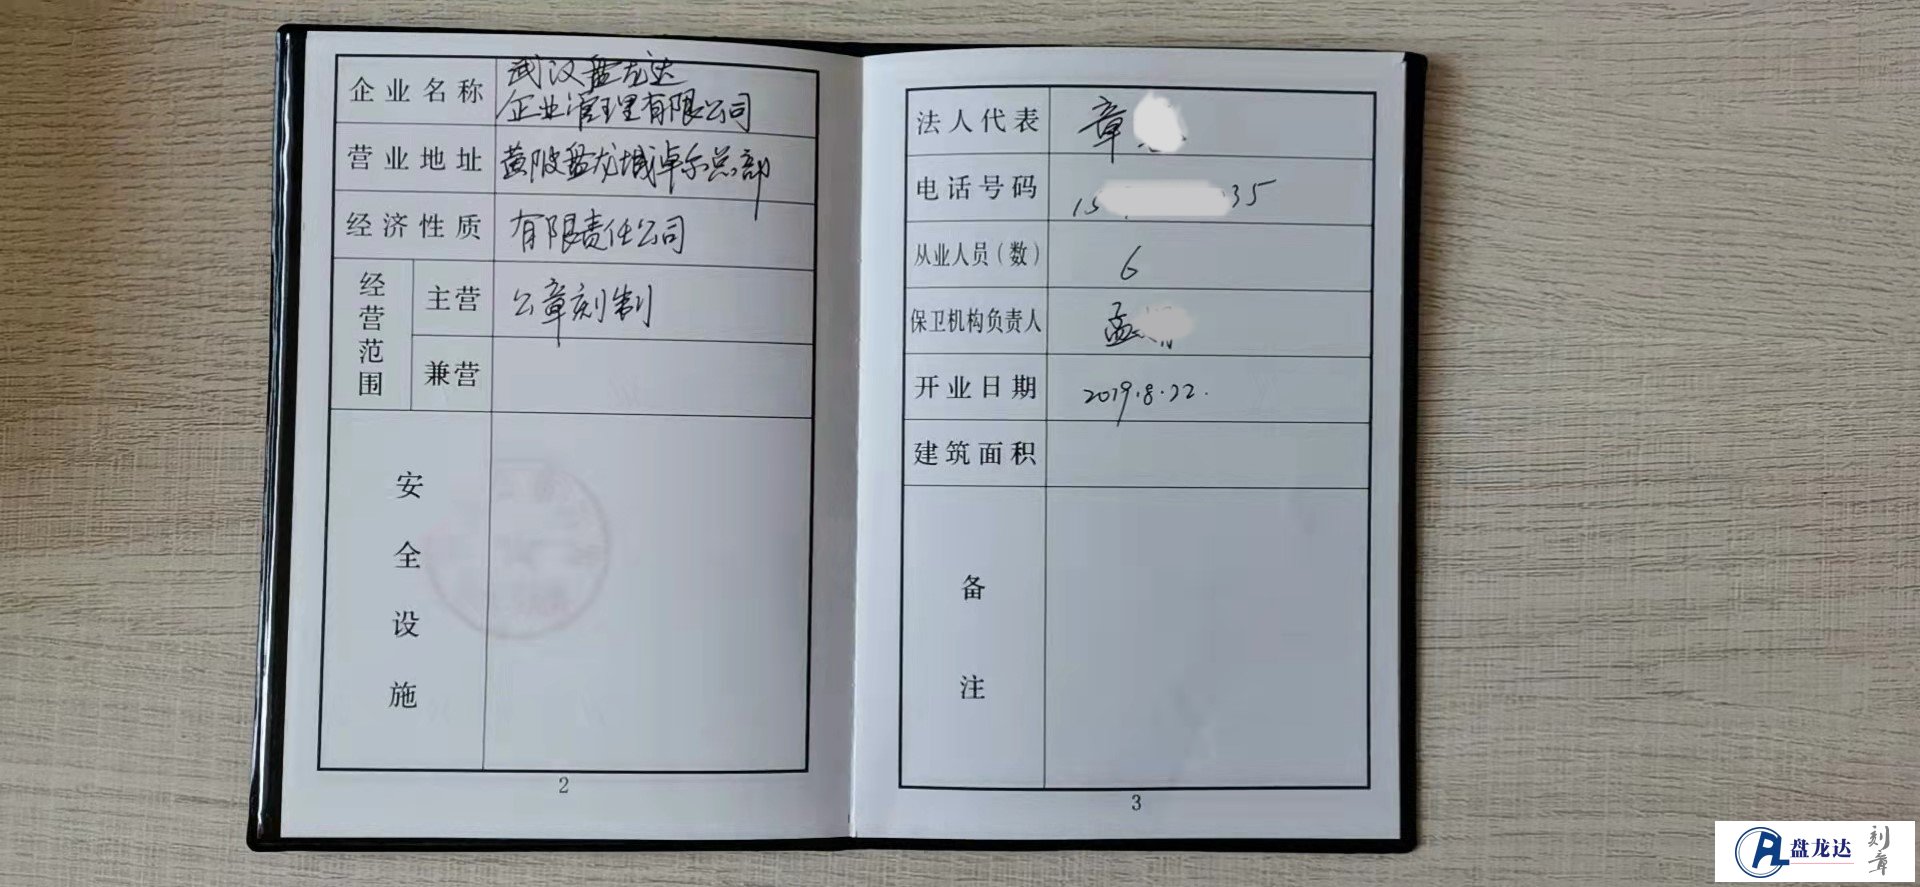 企业名称
武汉盘龙达
企业管理有限公司
营业地址
黄陂盘龙城卓尔总部
经济性质
有限责任公司
经营范围
主营
公章刻制
兼营
安全设施
2
法人代表
章
电话号码
15 35
从业人员(数)
6
保卫机构负责人
孟
开业日期
2019.8.22.
建筑面积
备注
3
盘龙达
刻章